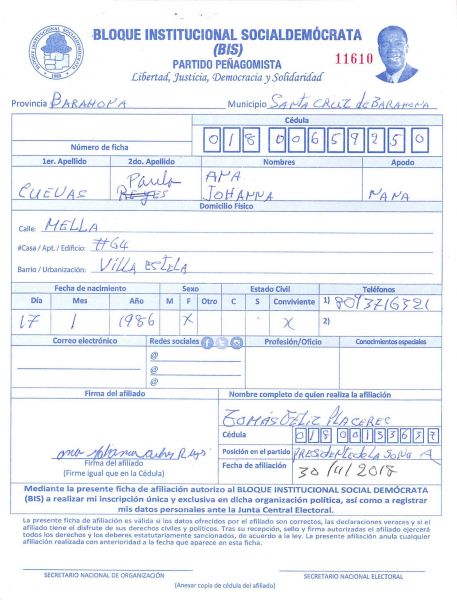 BLOQUE INSTITUCIONAL SOCIALDEMÓCRATA
(BIS)
PARTIDO PEÑAGOMISTA
11610
Libertad, Justicia, Democracia y Solidaridad
Provincia BARAHONA Municipio SANTA CRUZ de BARAHONA
Cédula
Número de ficha 018 0065925 0
1er. Apellido 2do. Apellido Nombres Apodo
CUEVAS Paula REYES ANA JOHANNA NANA
Domicilio Físico
Calle: MELLA
#Casa / Apt. / Edificio: #64
Barrio / Urbanización: VILLA ESTELA
Fecha de nacimiento Sexo Estado Civil Teléfonos
Día Mes Año M F Otro C S Conviviente 1) 8093716321
17 1 1986 X X 2)
Correo electrónico Redes sociales Profesión/Oficio Conocimientos especiales
@
@
@
Firma del afiliado Nombre completo de quien realiza la afiliación
TOMÁS FÉLIZ PLACERES
Cédula
Posición en el partido PRESIDENTE de LA A
Firma del afiliado
(Firme igual que en la Cédula)
Fecha de afiliación 30/11/2018
Mediante la presente ficha de afiliación autorizo al BLOQUE INSTITUCIONAL SOCIAL DEMÓCRATA
(BIS) a realizar mi inscripción única y exclusiva en dicha organización política, así como a registrar
mis datos personales ante la Junta Central Electoral.
La presente ficha de afiliación es válida si los datos ofrecidos por el afiliado son correctos, las declaraciones veraces y si el
afiliado tiene el disfrute de sus derechos civiles y políticos. Tras su recepción, sello y firma autorizados el afiliado ejercerá
todos los derechos y los deberes estatutariamente sancionados, de acuerdo a la ley. La presente afiliación anula cualquier
afiliación realizada con anterioridad a la fecha que aparece en esta ficha.
SECRETARIO NACIONAL DE ORGANIZACIÓN SECRETARIO NACIONAL ELECTORAL
(Anexar copia de cédula del afiliado)